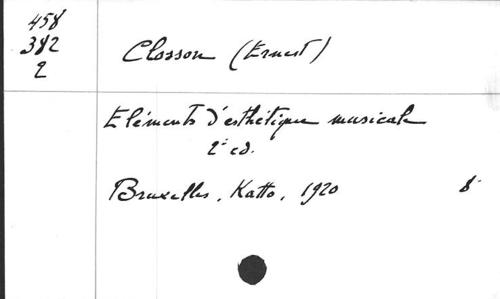 458
382
2
Closson (Ernest)
Eléments d'esthétique musicale
2e ed.
Bruxelles, Katto, 1920 8°